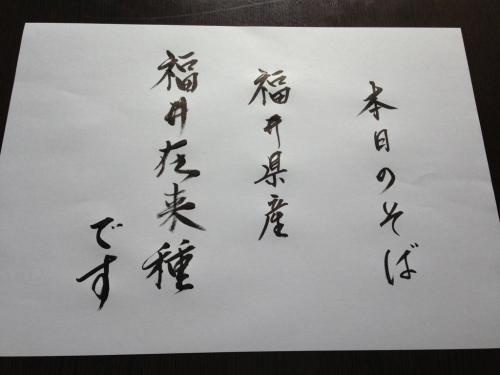 本日のそば
福井県産
福井在来種
です